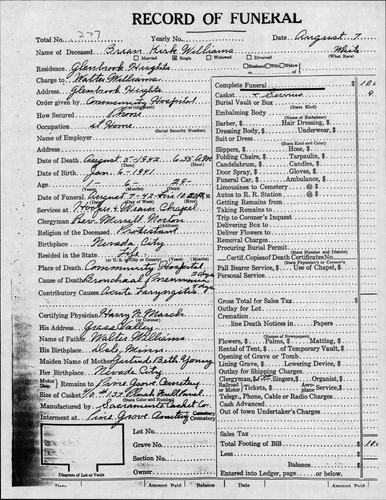 RECORD OF FUNERAL
Total No. 277 Yearly No. Date August 7
Name of Deceased Brian Kirk Williams White
Married Single Widowed Divorced (What Race)
Residence Glenbrook Heights Husband Wife Widow of
Charge to Walter Williams
Address Glenbrook Heights
Order given by Community Hospital
How Secured Phone
Occupation at Home
(Social Security Number)
Name of Employer
Address
Date of Death August 5-1942 A.M.
Date of Birth Jan. 6-1941
Age 1- 6- 29-
Date of Funeral August 7-42
Services at Hooper & Weaver Chapel
Clergyman Rev Merrill Norton
Religion of the Deceased Protestant
Birthplace Nevada City
Resided in the State Life
Place of Death Community Hospital
Cause of Death Bronchial Pneumonia
Contributory Causes Acute
Certifying Physician Harry N. March
His Address Grass Valley
Name of Father Walter Williams
His Birthplace Minn.
Maiden Name of Mother Gertrude Young
Her Birthplace Nevada City
Remains to Pine Grove Cemetery
Size of Casket
Manufactured by Sacramento Casket Co
Interment at Pine Grove Cemetery Cemetery
Lot No.
Grave No.
Section No.
Owner
Diagram of Lot or Vault
Complete Funeral $
Casket
Burial Vault or Box
(State Kind)
Embalming Body
(Name of Embalmer)
Barber, $ Hair Dressing, $
Dressing Body, $ Underwear, $
Suit or Dress
(State Kind)
Slippers, $ Hose, $
Folding Chairs, $ Tarpaulin, $
Candelabrum, $ Candles, $
Door Spray, $ Gloves, $
Funeral Car, $ Ambulance, $
Limousines to Cemetery @ $
Autos to R. R. Station @ $
Getting Remains from
Taking Remains to
Trip to Coroner's Inquest
Delivering Box to
Deliver Flowers to
Removal Charges
Procuring Burial Permit
(State Number and District)
Certif. Copies of Death Certificates No.
Pall Bearer Service, $ Use of Chapel, $
Personal Service
Gross Total for Sales Tax $
Outlay for Lot
Cremation
line Death Notices in Papers
(Name Newspapers)
Flowers, $ Palms, $ Matting, $
Rental of Tent, $ of Temporary Vault, $
Opening of Grave or Tomb
Lining Grave, $ Lowering Device, $
Outlay for Shipping Charges
Clergyman, $ Singers, $ Organist, $
Railroad Tickets, $ Aeroplane Service, $
Telegr., Phone, Cable or Radio Charges
Cash Advanced
Out of town Undertaker's Charges
Sales Tax
Total Footing of Bill $
Less
Balance
Entered into Ledger, page or below.
Date Amount Paid Balance Date Amount Paid Balance